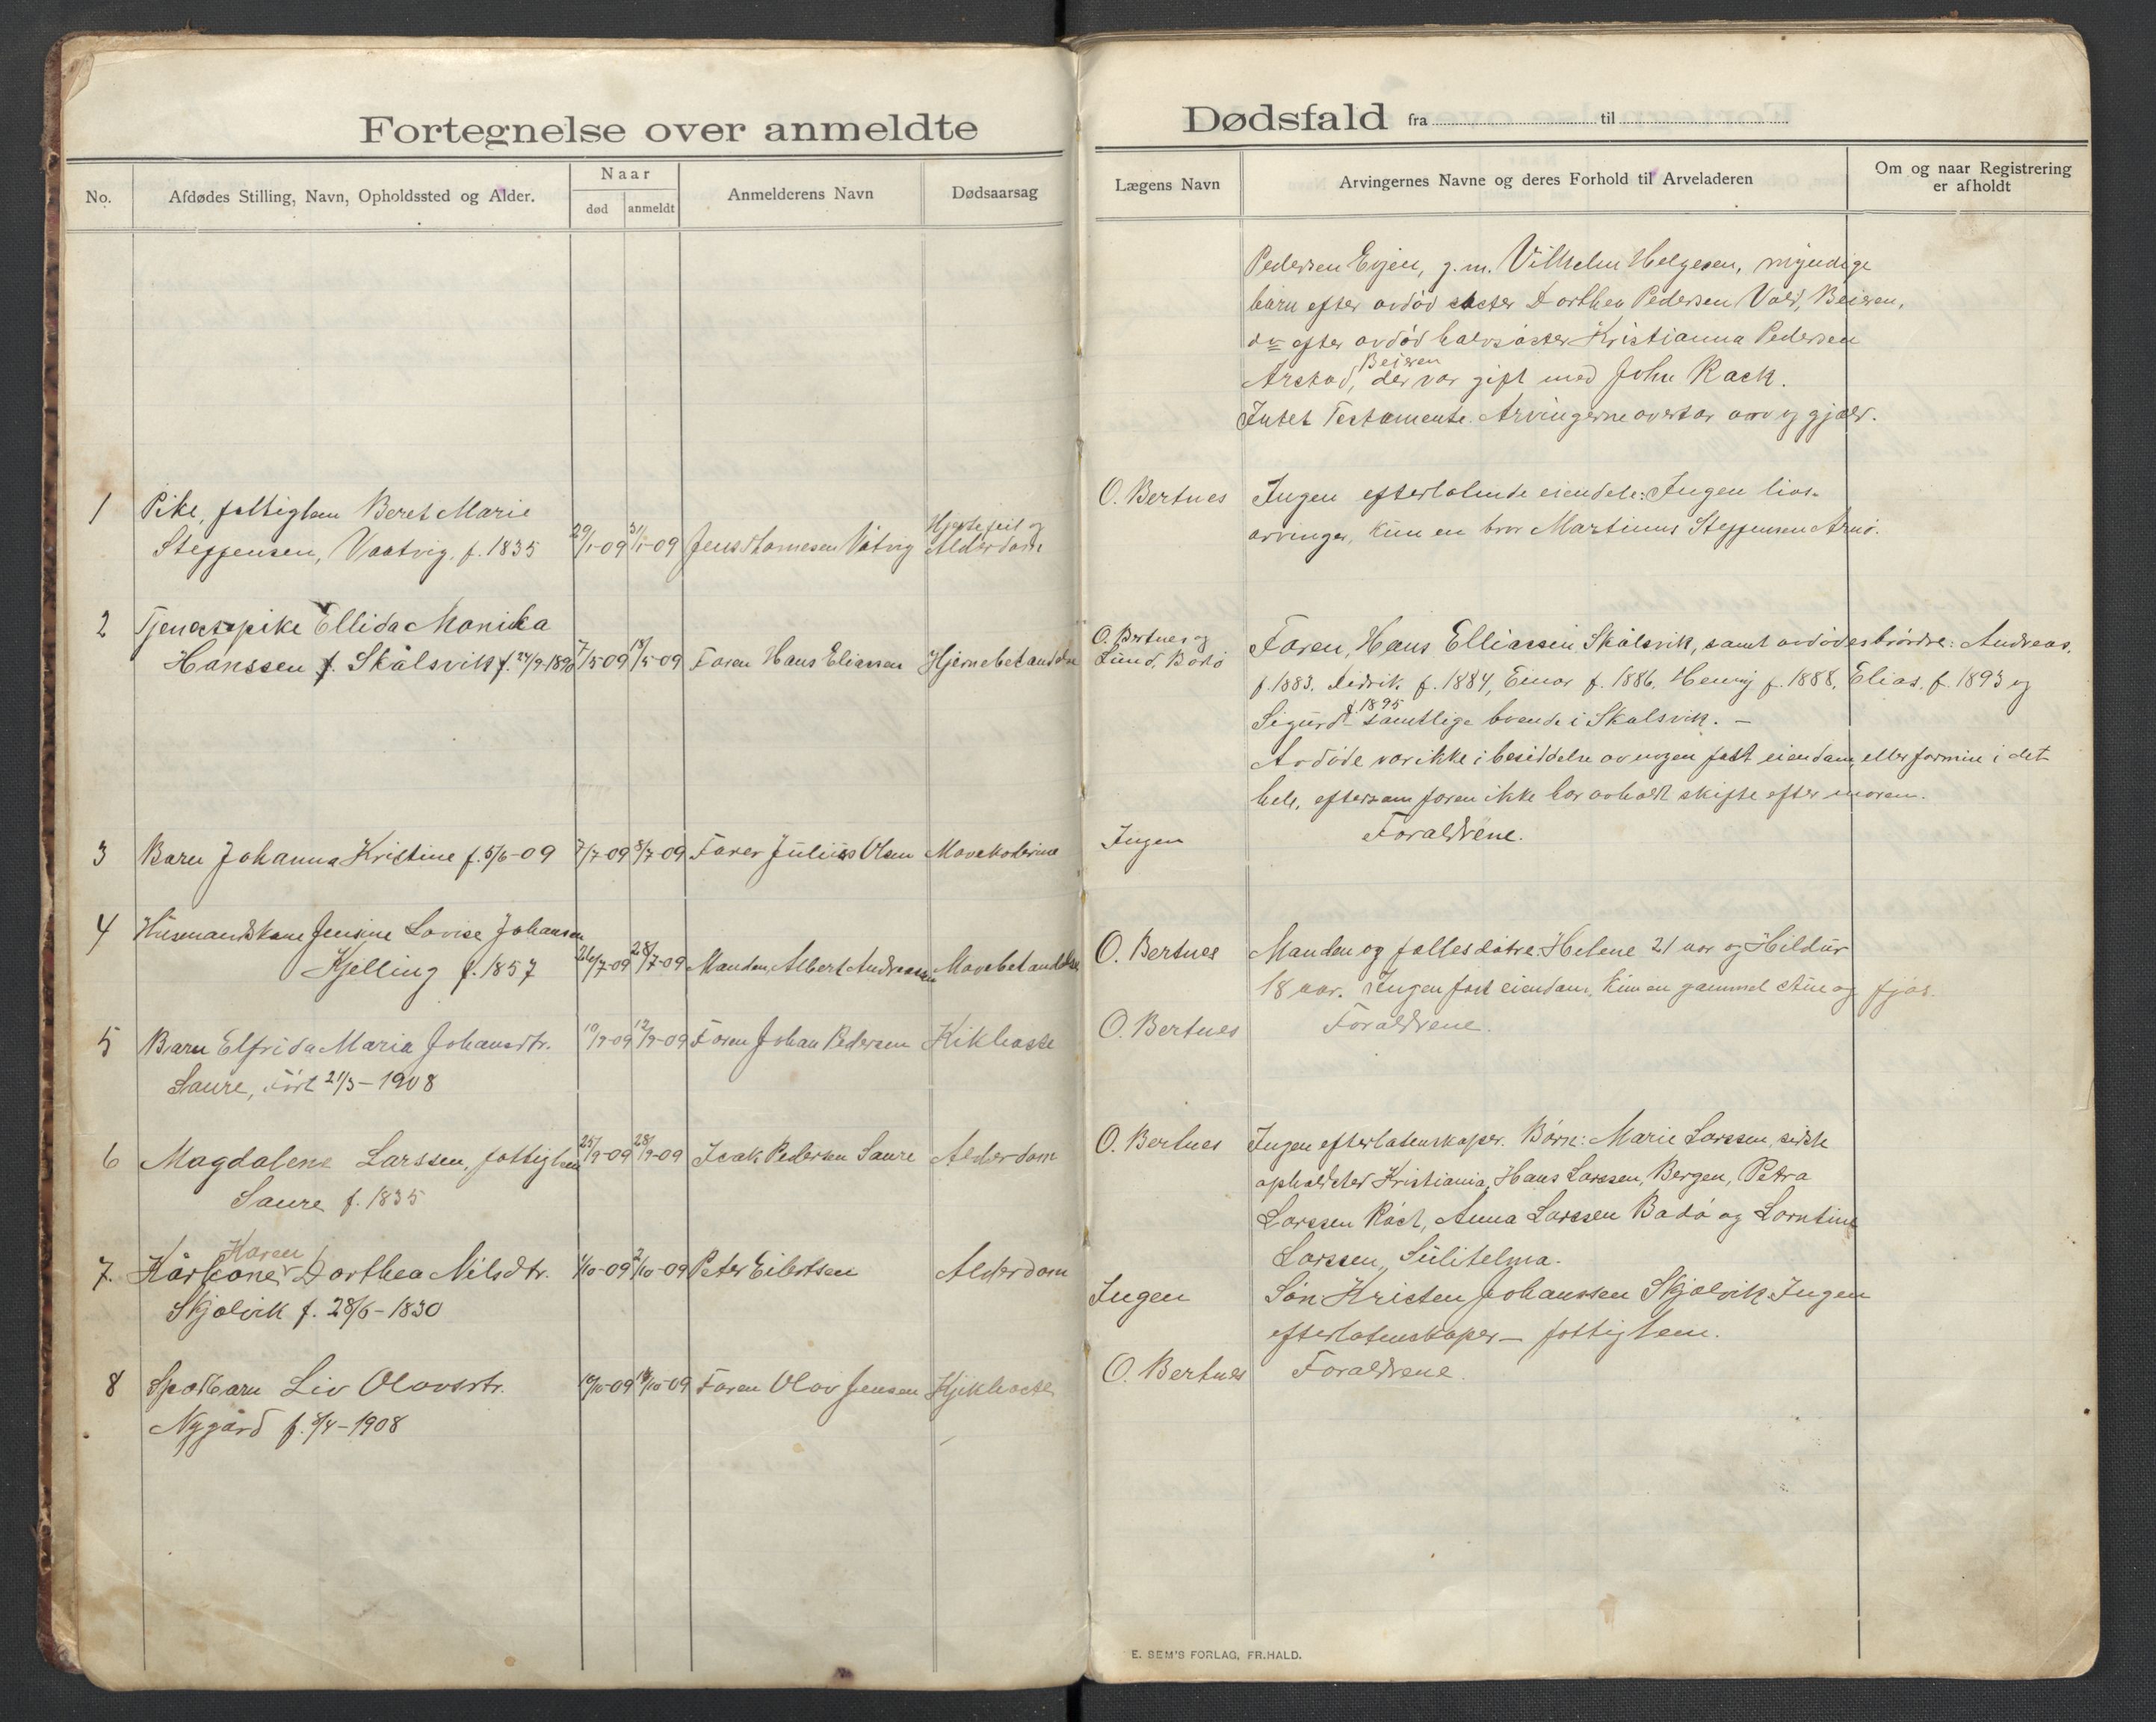 Fortegnelse over anmeldte
Dødsfald fra til
No.
Afdødes Stilling, Navn, Opholdssted og Alder.
Naar
død
anmeldt
Anmelderens Navn
Dødsaarsag
Lægens Navn
Arvingernes Navne og deres Forhold til Arveladeren
Om og naar Registrering
er afholdt
Pedersen Evjen, g.m. Vilhelm Helgesen, myndige
barn efter avdød søster Dorthea Pedersen Vold, Beieren,
do efter avdød halvsøster Kristianna Pedersen
Arstad, Beieren der var gift med John Rack.
Intet Testamente. Arvingerne overtar arv og gjæld.
1 Pike, fattiglem Beret Marie
Steffensen, Vaatvig. f. 1835
29/1-09 31/1-09 Jens Hornesen Våtvig
Hjertefeil og
Alderdom
O. Bertnes
Ingen efterlatende eiendele: Ingen livs-
arvinger, kun en bror Martinus Steffensen Arnø.
2 Tjenestepike Ellida Monika
Hanssen Skålsvik f. 24/9-1890
7/5-09 18/5-09 Faren Hans Eliassen Hjernebetændelse
O. Bertnes og
Lund, Bodø
Faren, Hans Elliassen Skålsvik, samt avdødes brødre: Andreas.
f. 1883. Fedrik f. 1884, Einar f. 1886. Henrij f. 1888. Elias. f. 1893 og
Sigurd f 1895 samtlige boende i Skalsvik. –
Avdøde var ikke i besiddelse av nogen fast eiendom, eller formue i det
hele, eftersom faren ikke har avholdt skifte efter moren.
3 Barn Johanna Kristine f. 5/6-09 7/7-09 8/7-09 Faren Julius Olsen Mavekolerine
Ingen
Forældrene.
4 Husmandskone Jensine Lovise Johansen
Kjelling f. 1857
26/7-09 28/7-09 Manden, Albert Andreassen Mavebetændelse
O. Bertnes
Manden og fælles døtre: Helene 21 aar og Hildur
18 aar. Ingen fast eiendom. Kun en gammel stue og fjøs.
5 Barn Elfrida Maria Johansdtr.
Saure, født 21/3-1908
10/9-09 12/9-09 Faren Johan Pedersen Kikhoste
O. Bertnes
Forældrene.
6 Magdalene Larssen, fattiglem
Saure f. 1835
25/9-09 28/9-09 Isak Pedersen Saure Alderdom
O. Bertnes
Ingen efterlatenskaper. Børn: Marie Larssen, sidste
opholdsted Kristiania, Hans Larssen, Bergen, Petra
Larssen Røst, Anna Larssen Bodø og Lorntine
Larssen, Sulitelma.
7. Kårkone Karen Dorthea Nilsdtr.
Skjelvik f. 28/6-1830
1/10-09 2/10-09 Peter Eilertsen Alderdom
Ingen
Søn Kristen Johanssen Skjelvik. Ingen
efterlatenskaper – fattiglem.
8 Spædbarn Liv Olavsdtr.
Nygård f. 8/4-1908
Faren Olav Jensen Kjikhoste
O. Bertnes
Forældrene.
E. SEM'S FORLAG, FR.HALD.